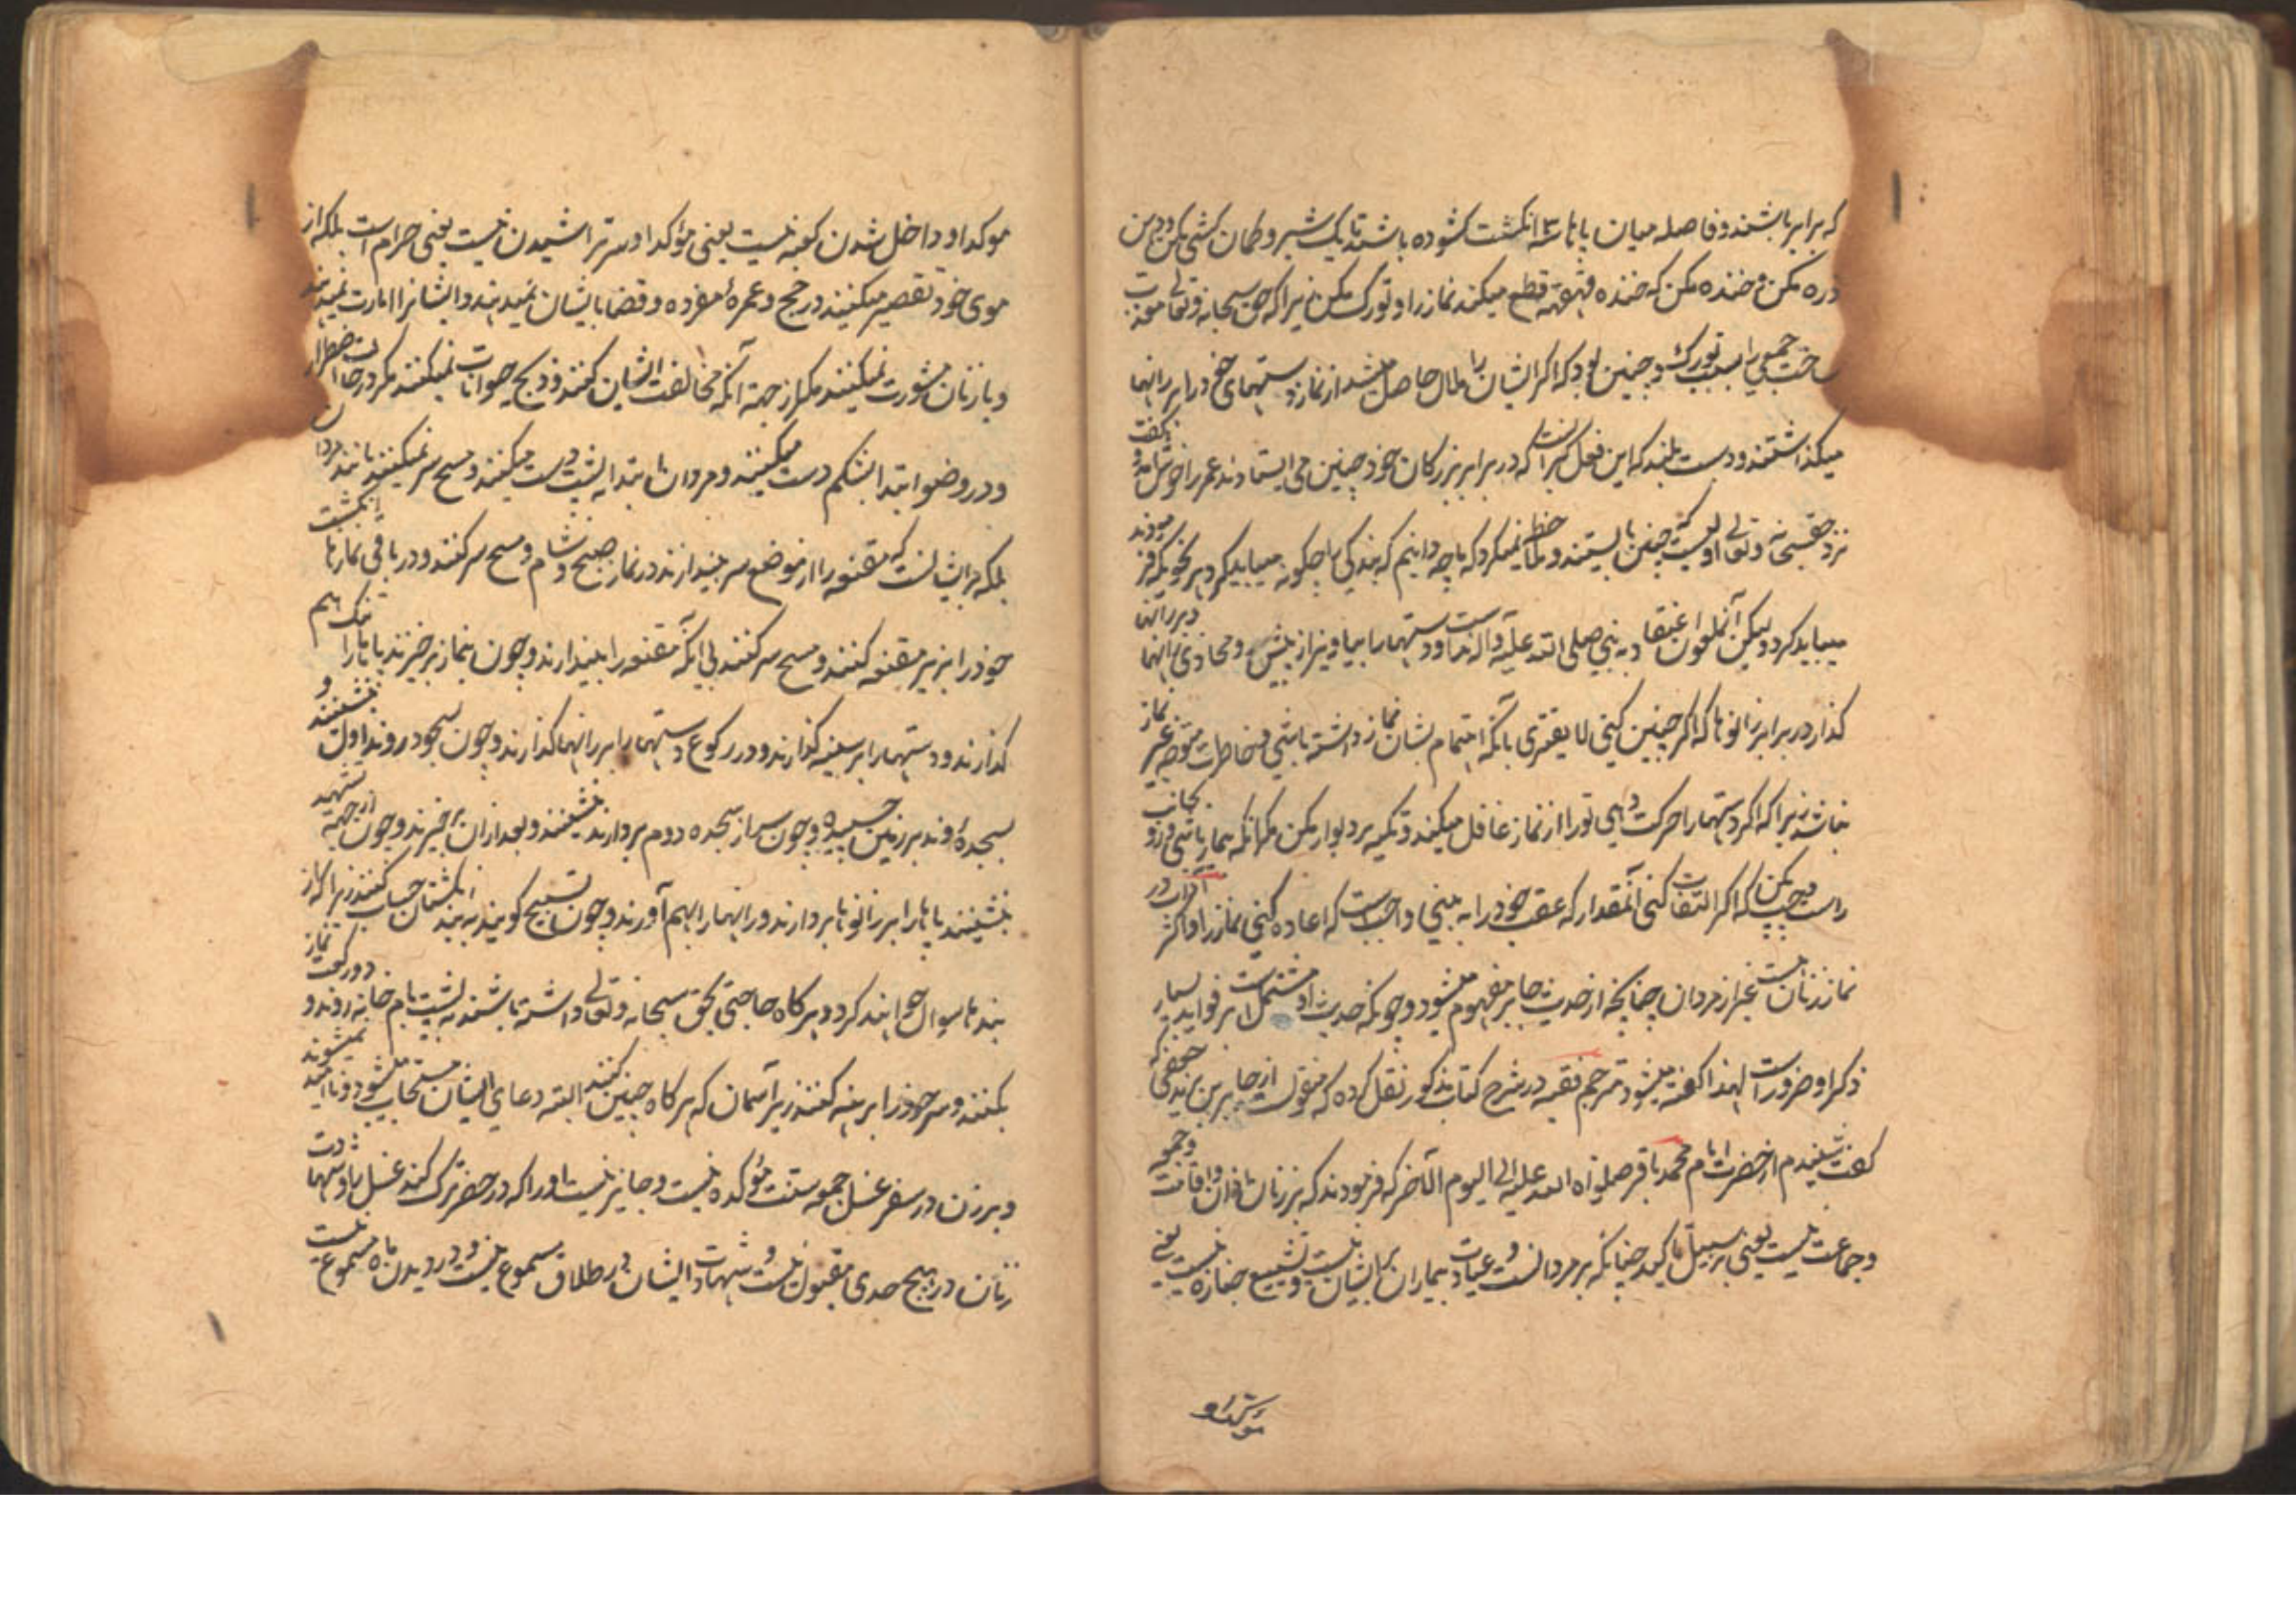 که برابر باشند و فاصله میان پاها سه انکشت کشوده باشند تا یک شبر و کمان کشی مکن و دهن
دره مکن و خنده مکن که خنده قهقهه قطع میکند نماز را و تورک مکن زیرا که حق سبحانه و تعالی معذب
ساخت جمعی را بسبب تورک و چنین بود که اکر ایشان را ملال حاصل میشد از نماز دستهای خود را بر رانها
میکذاشتند و دست بلند که این فعل کبرانست که در برابر بزرکان خود چنین می ایستادند عمر را خوش آمد و کفت
نزد حقسبحانه و تعالی اولیست که چنین بایستند و ملاحظه نمیکرد که ما چه دانیم که بندکی را چکونه میباید کرد بهر نحویکه فرمودند
میباید کرد ولیکن آنملعون اعتقاد به نبی صلی الله علیه و آله نداشت و دستهارا بیاویز از پیش و محاذی رانها و بر رانها
کذار در برابر زانوها که اکر چنین کنی لا یفتری بانکه اهتمام بشان نماز داشته باشی و خاطرت متوجه غیر نماز
نباشد زیرا که اکر دستهارا حرکت دهی تو را از نماز غافل میکند و تکیه بر دیوار مکن مکر آنکه بیمار باشی و رو بجانب
راست و چپ مکن که اکر التفات کنی آنمقدار که عقب خود را به بینی واجبست که اعاده کنی نماز را و اکثر آداب در
نماز زنانست غیر از مردان چنانچه از حدیث جابر مفهوم میشود و چونکه حدیث او مشتمل است بر فواید بسیار
ذکر او ضرور است لهذا کفته میشود مترجم فقیه در شرح کتاب مذکور نقل کرده که منقولست از جابر بن یزید جعفی که
کفت شنیدم از حضرت امام محمد باقر صلوات الله علیه الی الیوم الآخر که فرمودند که بر زنان اذان و اقامت و جمعه
و جماعت نیست یعنی بر سبیل تاکید چنانکه بر مردانست و عیادت بیماران بر ایشان نیست و تشییع جنازه نیست یعنی
موکد او
موکد او و داخل شدن کعبه نیست یعنی مؤکد او سر تراشیدن نیست یعنی حرام است بلکه از
موی خود تقصیر میکنند در حج و عمرهٔ مفرده و قضا بایشان نمیدهند و ایشانرا امارت نمیدهند
و با زنان مشورت نمیکنند مکر از جهة آنکه مخالفت ایشان کنند و ذبح حیوانات نمیکنند مکر در حالت اضطرار
و در وضو ابتدا بشکم دست میکنند و مردان ابتدا به پشت دست میکنند و مسح سر نمیکنند مانند مردان
بلکه بر ایشانست که مقنعه را از موضع سر بیندازند در نماز صبح و شام و مسح سر کنند و در باقی نمازها انکشت
خود را بزیر مقنعه کنند و مسح سر کنند بی انکه مقنعه را بیندازند و چون بنماز برخیزند پاها را نزدیک بهم
کذارند و دستهارا بر سینه کذارند و در رکوع دستهارا بر رانها کذارند و چون بسجود روند اول بنشینند و
بسجده روند بر زمین چسبیده و چون سر از سجده دوم بردارند بنشینند و بعد از ان برخیزند و چون از جهة تشهد
بنشینند پاها را بر زانوها بردارند و رانهارا بهم آورند و چون تسبیح کویند به بند انکشتان حساب کنند زیرا که از
بندها سوال خواهند کرد و هر کاه حاجتی بحق سبحانه و تعالی داشته باشند به پشت بام خانه روند و دو رکعت نماز
بکنند و سر خود را برهنه کنند زیر آسمان که هر کاه چنین کنند البته دعای ایشان مستجاب میشود و نا امید نمیشوند
و بر زن در سفر غسل جمعه سنت مؤکده نیست و جایز نیست او را که در حضر ترک کند غسل را و شهادت
زنان در هیچ حدی مقبول نیست و شهادت ایشان در طلاق مسموع نیست و در دیدن ماه مسموع نیست